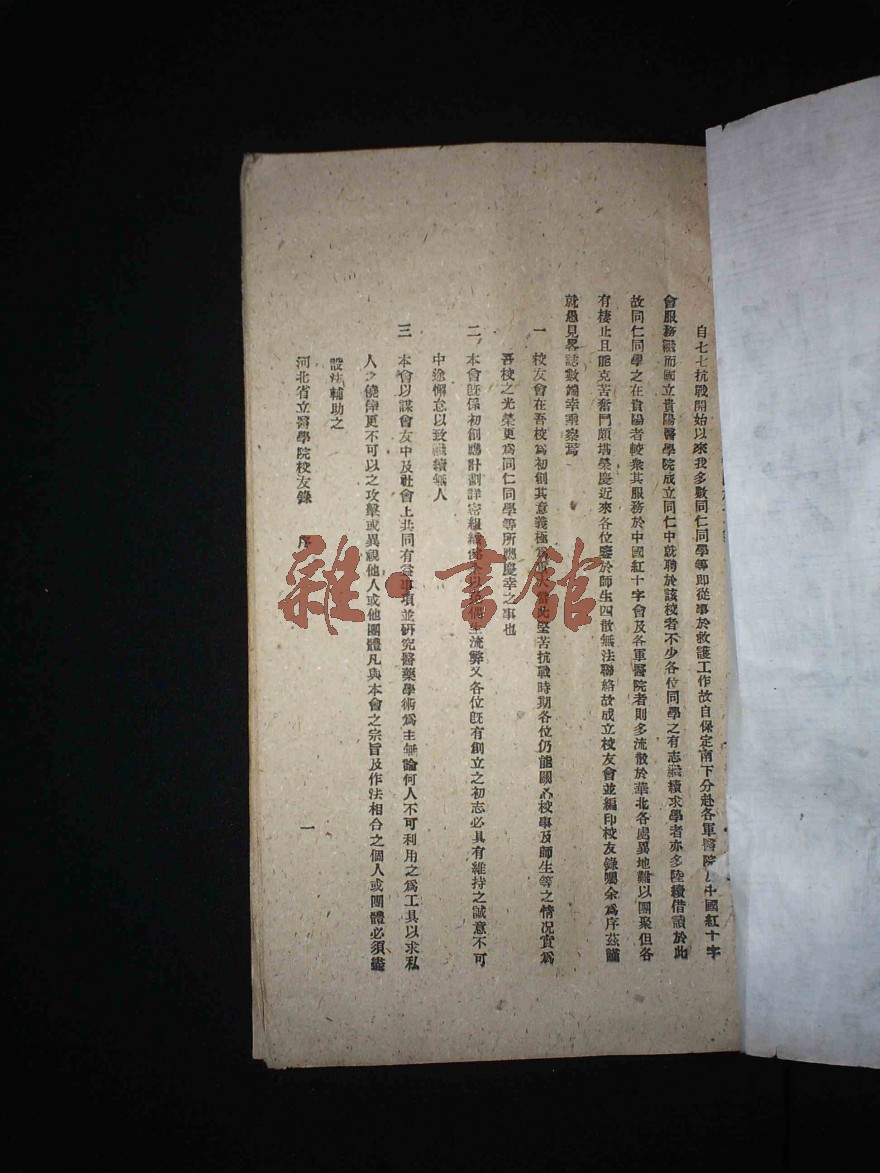 自七七抗戰開始以來我多數同仁同學等即從事於救護工作故自保定南下分赴各軍醫院 中國紅十字
會服務繼而國立貴陽醫學院成立同仁中就聘於該校者不少各位同學之有志繼續求學者亦多陸續借讀於此
故同仁同學之在貴陽者較衆其服務於中國紅十字會及各軍醫院者則多流散於華北各處異地難以團聚但各
有棲止且能克苦奮鬥頗堪榮慶近來各位鑒於師生四散無法聯絡故成立校友會並編印校友錄囑余爲序茲謹
就愚見畧誌數端幸垂察焉
一 校友會在吾校爲初創其意義極爲重大當此堅苦抗戰時期各位仍能關心校事及師生等之情況實爲
吾校之光榮更爲同仁同學等所應慶幸之事也
二、本會既係初創應計劃詳密組織 流弊又各位既有創立之初志必具有維持之誠意不可
中途懈怠以致繼續無人
三 本會以謀會友中及社會上共同有益事項並研究醫藥學術爲主無論何人不可利用之爲工具以求私
人之僥倖更不可以之攻擊或異視他人或他團體凡與本會之宗旨及作法相合之個人或團體必須儘
設法輔助之
河北省立醫學院校友錄 序 一
雜·書館